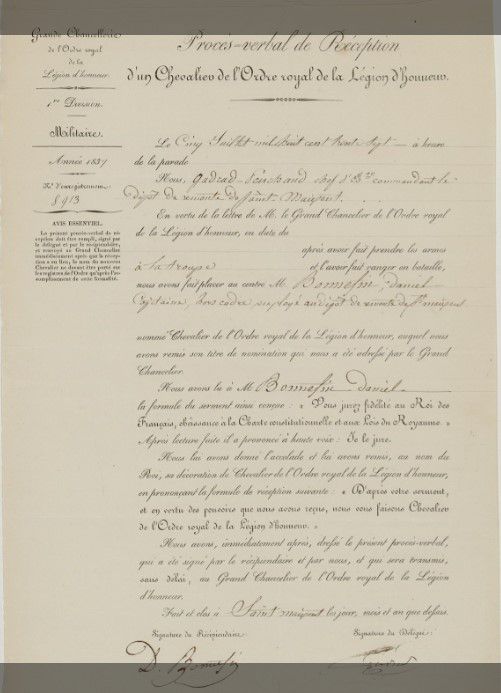 Grande Chancellerie
de l'Ordre royal
de la
Légion d'honneur.
1.re Division.
Militaire.
Année 1837
N.º d'enregistrement
8913
AVIS ESSENTIEL.
Le présent procès-verbal de ré-
ception doit être rempli, signé par
le délégué et par le récipiendaire,
et renvoyé au Grand Chancelier
immédiatement après que la réception
a eu lieu, le nom du nouveau
Chevalier ne devant être porté sur
les registres de l'Ordre qu'après l'ac-
complissement de cette formalité.
Procès-verbal de Réception
d'un Chevalier de l'Ordre royal de la Légion d'honneur.
Le Cinq Juillet mil huit cent trente sept — à heure
de la parade
Nous, chef d'Es.on commandant le
dépôt de remonte de Saint Maixent
En vertu de la lettre de M. le Grand Chancelier de l'Ordre royal
de la Légion d'honneur, en date du
après avoir fait prendre les armes
à la troupe et l'avoir fait ranger en bataille,
nous avons fait placer au centre M. Bonnefin, Daniel
Capitaine, hors cadre employé au dépôt de remonte de St maixent
nommé Chevalier de l'Ordre royal de la Légion d'honneur, auquel nous
avons remis son titre de nomination que nous a été adressé par le Grand
Chancelier.
Nous avons lu à M Bonnefin Daniel
la formule du serment ainsi conçue : « Vous jurez fidélité au Roi des
Français, obéissance à la Charte constitutionnelle et aux Lois du Royaume »
Après lecture faite il a prononcé à haute voix : Je le jure.
Nous lui avons donné l'accolade et lui avons remis, au nom du
Roi, sa décoration de Chevalier de l'Ordre royal de la Légion d'honneur,
en prononçant la formule de réception suivante : « D'après votre serment,
et en vertu des pouvoirs que nous avons reçus, nous vous faisons Chevalier
de l'Ordre royal de la Légion d'honneur. »
Nous avons, immédiatement après, dressé le présent procès-verbal,
qui a été signé par le récipiendaire et par nous, et qui sera transmis,
sans délai, au Grand Chancelier de l'Ordre royal de la Légion
d'honneur.
Fait et clos à Saint maixent les jour, mois et an que dessus.
Signature du Récipiendaire. Signature du Délégué :
D. Bonnefin